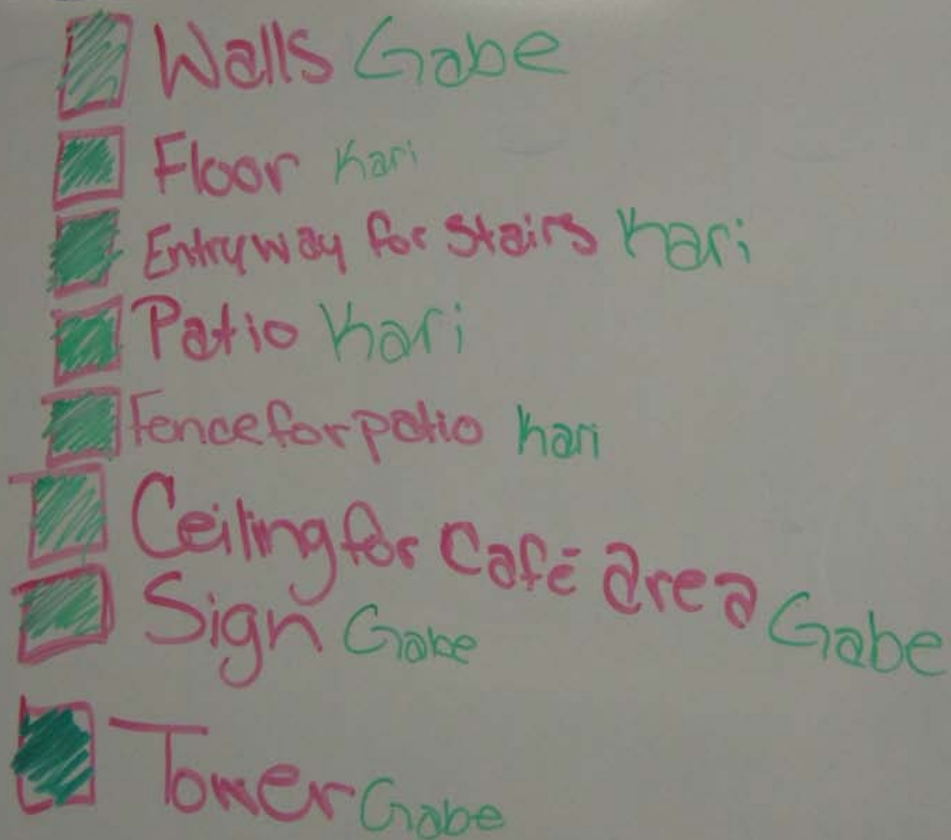 Walls Gabe
Floor Kari
Entryway for stairs Kari
Patio Kari
Fence for patio Kari
Ceiling for Café area Gabe
Sign Gabe
Tower Gabe